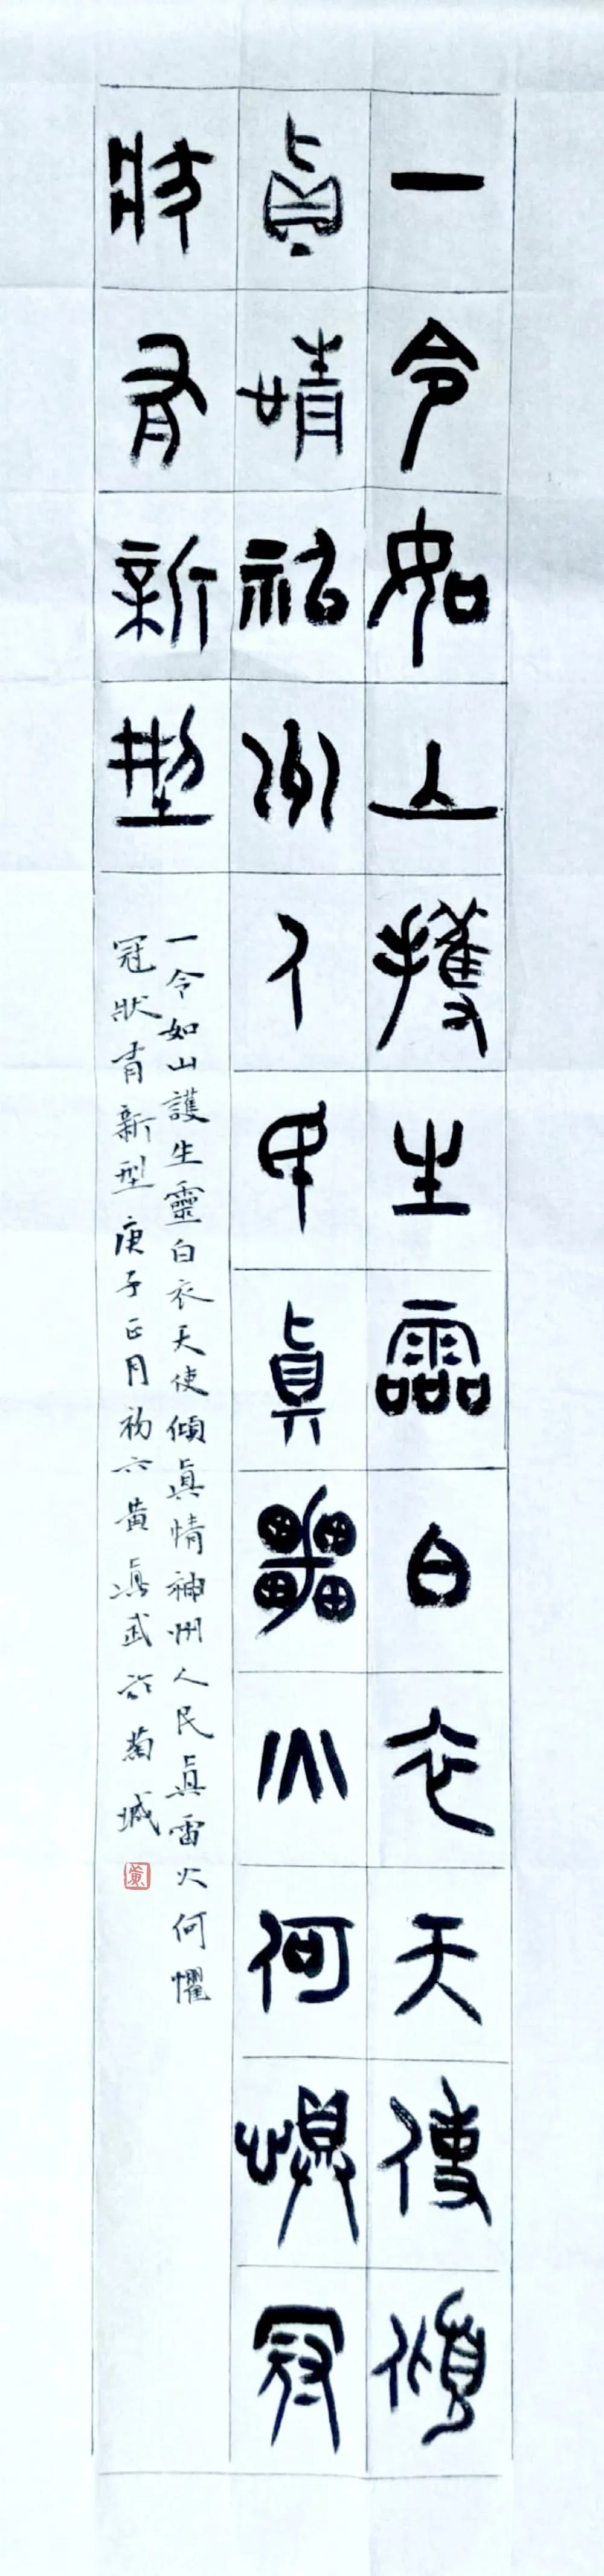 一令如山護生靈白衣天使傾
真情神州人民真雷火何懼冠
狀肓新型
一令如山護生靈白衣天使傾真情神州人民真雷火何懼
冠狀肓新型庚子正月初六黄真武於菊城
黄